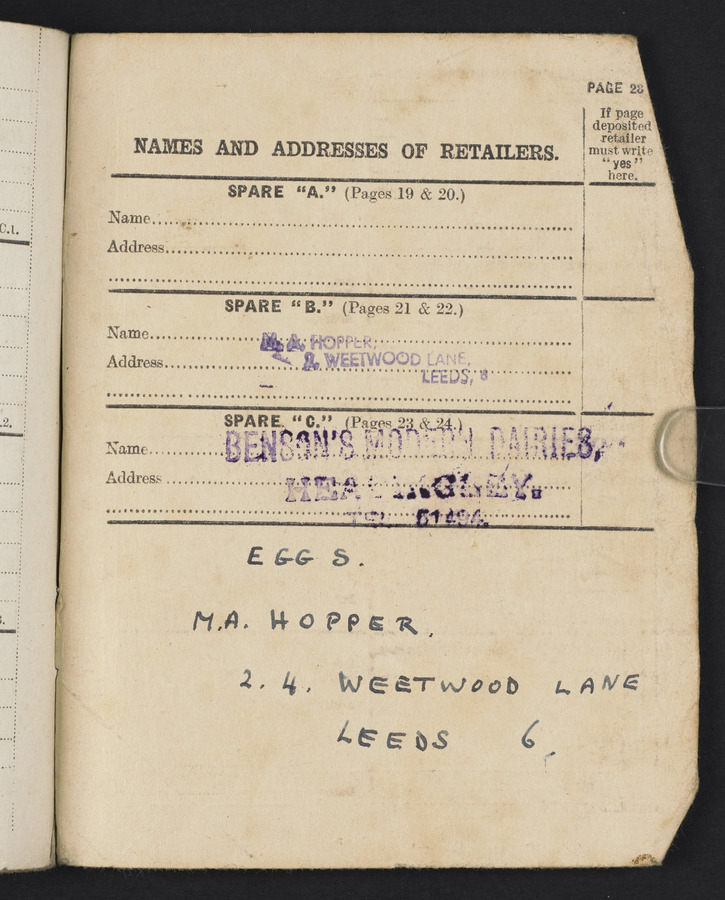 PAGE 28
If page
deposited
retailer
must write
"yes"
here.
NAMES AND ADDRESSES OF RETAILERS.
SPARE "A." (Pages 19 & 20.)
Name
Address
SPARE "B." (Pages 21 & 22.)
Name M. A. HOPPER,
Address 2, WEETWOOD LANE,
LEEDS, 8
SPARE "C." (Pages 23 & 24.)
Name BENSON'S MODERN DAIRIES,
Address HEADINGLEY.
TEL. 51494.
EGGS.
M.A. HOPPER.
2. 4. WEETWOOD LANE
LEEDS 6
C.1.
.2.